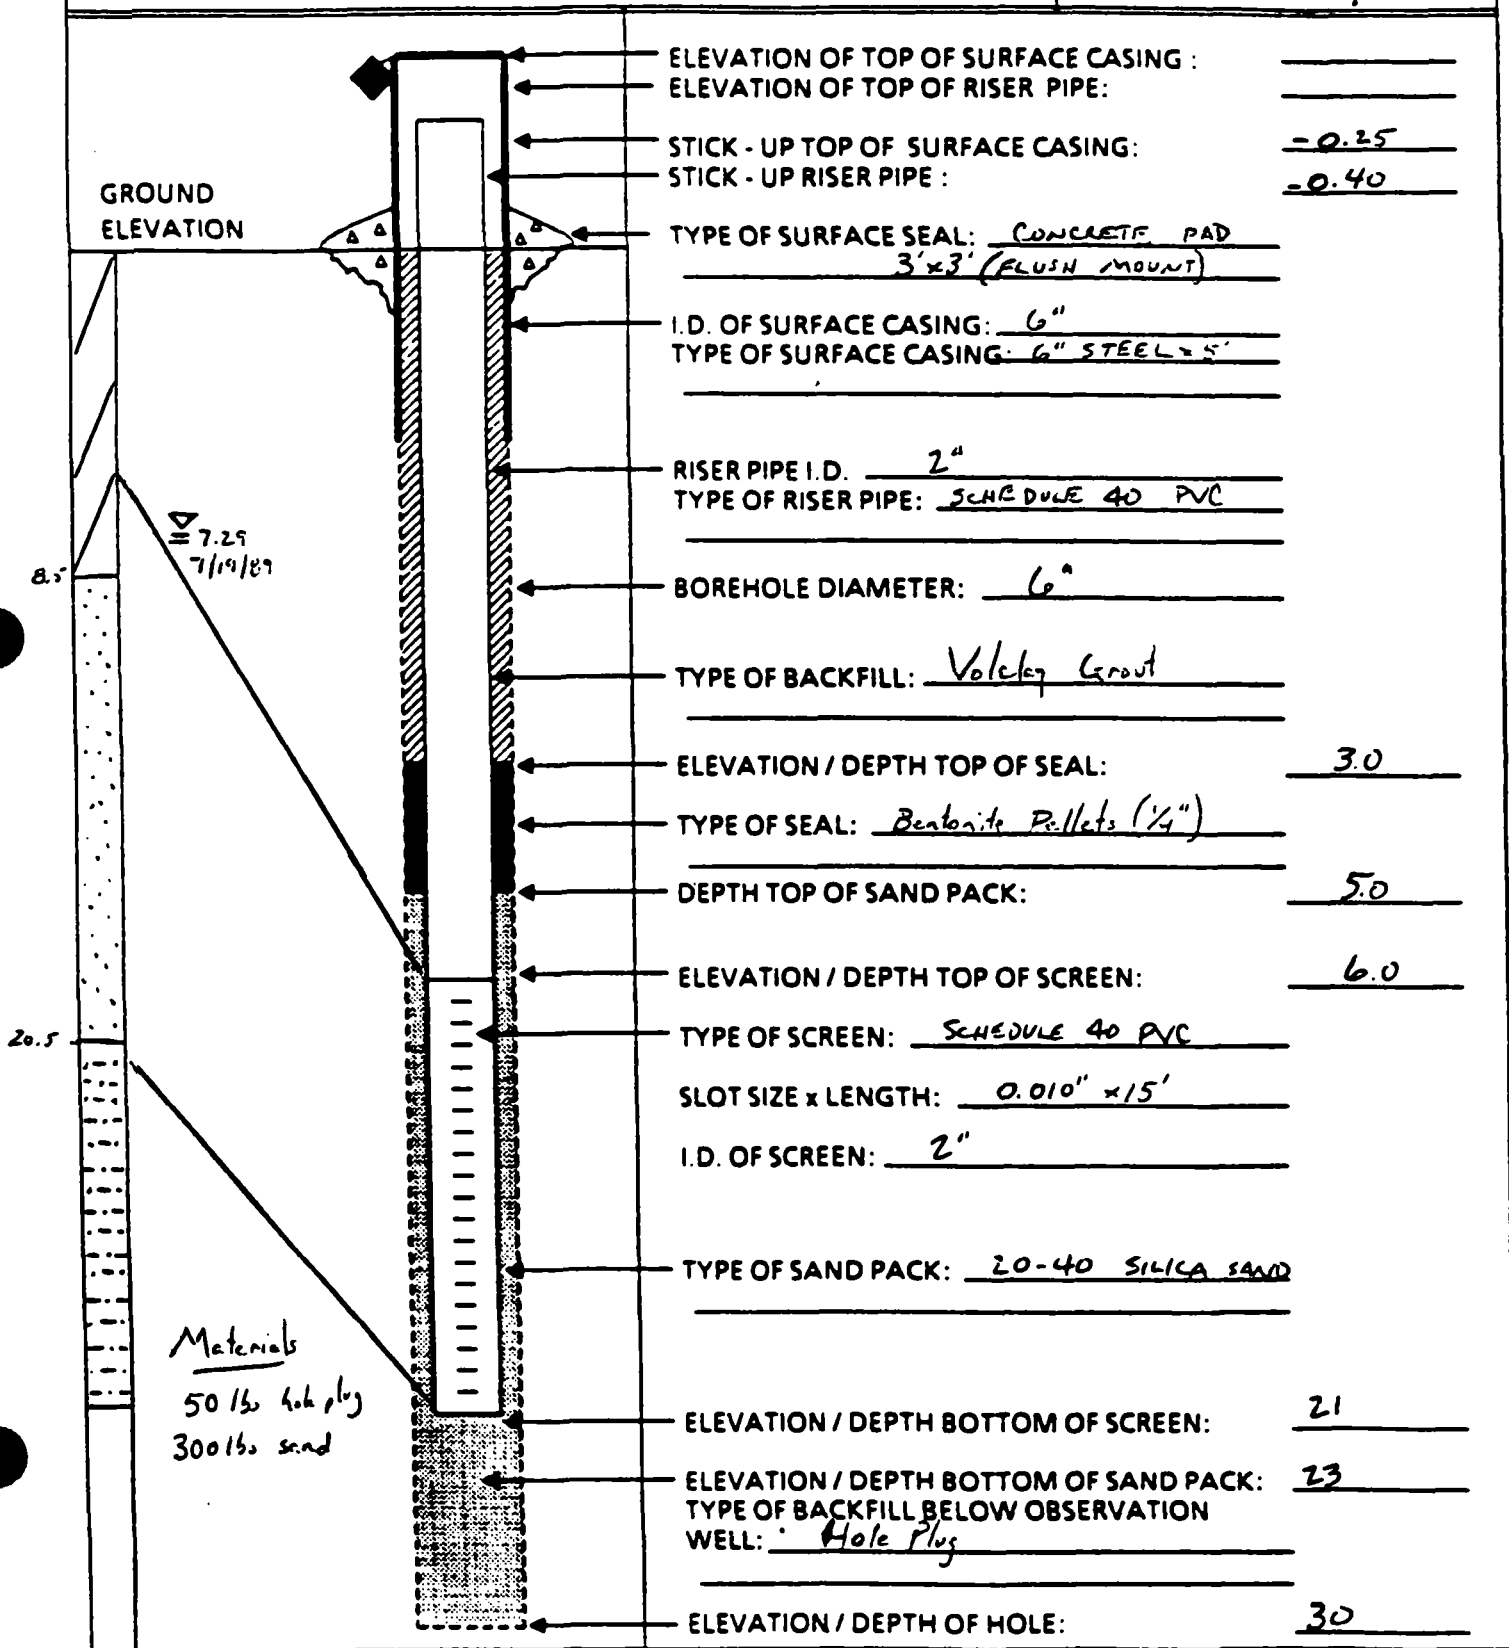 ELEVATION OF TOP OF SURFACE CASING :
ELEVATION OF TOP OF RISER PIPE:
STICK - UP TOP OF SURFACE CASING: -0.25
STICK - UP RISER PIPE : -0.40
GROUND
ELEVATION
TYPE OF SURFACE SEAL: CONCRETE PAD
3'x3' (FLUSH MOUNT)
I.D. OF SURFACE CASING: 6"
TYPE OF SURFACE CASING: 6" STEEL x 5'
RISER PIPE I.D. 2"
TYPE OF RISER PIPE: SCHEDULE 40 PVC
7.29
7/19/89
8.5
BOREHOLE DIAMETER: 6"
TYPE OF BACKFILL: Volclay Grout
ELEVATION / DEPTH TOP OF SEAL: 3.0
TYPE OF SEAL: Bentonite Pellets (1/4")
DEPTH TOP OF SAND PACK: 5.0
ELEVATION / DEPTH TOP OF SCREEN: 6.0
20.5
TYPE OF SCREEN: SCHEDULE 40 PVC
SLOT SIZE x LENGTH: 0.010" x15'
I.D. OF SCREEN: 2"
TYPE OF SAND PACK: 20-40 SILICA SAND
Materials
50 lbs hole plug
300 lbs sand
ELEVATION / DEPTH BOTTOM OF SCREEN: 21
ELEVATION / DEPTH BOTTOM OF SAND PACK: 23
TYPE OF BACKFILL BELOW OBSERVATION
WELL: Hole Plug
ELEVATION / DEPTH OF HOLE: 30